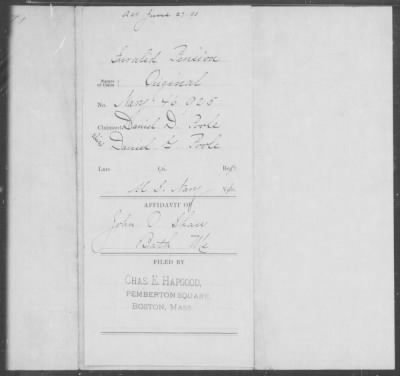 Act June 27. 90
Invalid Pension
Nature of Claim: Original
No. Navy 46,025
Claimant: Daniel D. Poole
alias Daniel G. Poole
Late Co. Reg't
U.S. Navy Vols.
AFFIDAVIT OF
John O. Shaw
Bath Me
FILED BY
CHAS. E. HAPGOOD,
PEMBERTON SQUARE,
BOSTON, MASS.